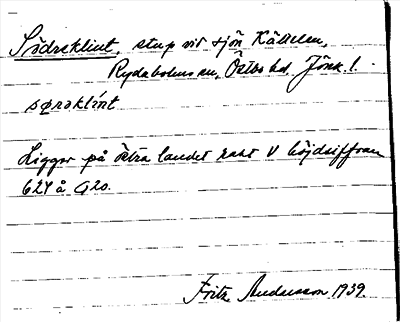 Södraklint, stup vid sjön Källelen,
Rydaholms sn, Östbo hd, Jönk. l.
søraklínt
Ligger på östra landet rakt V höjdsiffran
624 å G20.
Fritz Andersson 1939